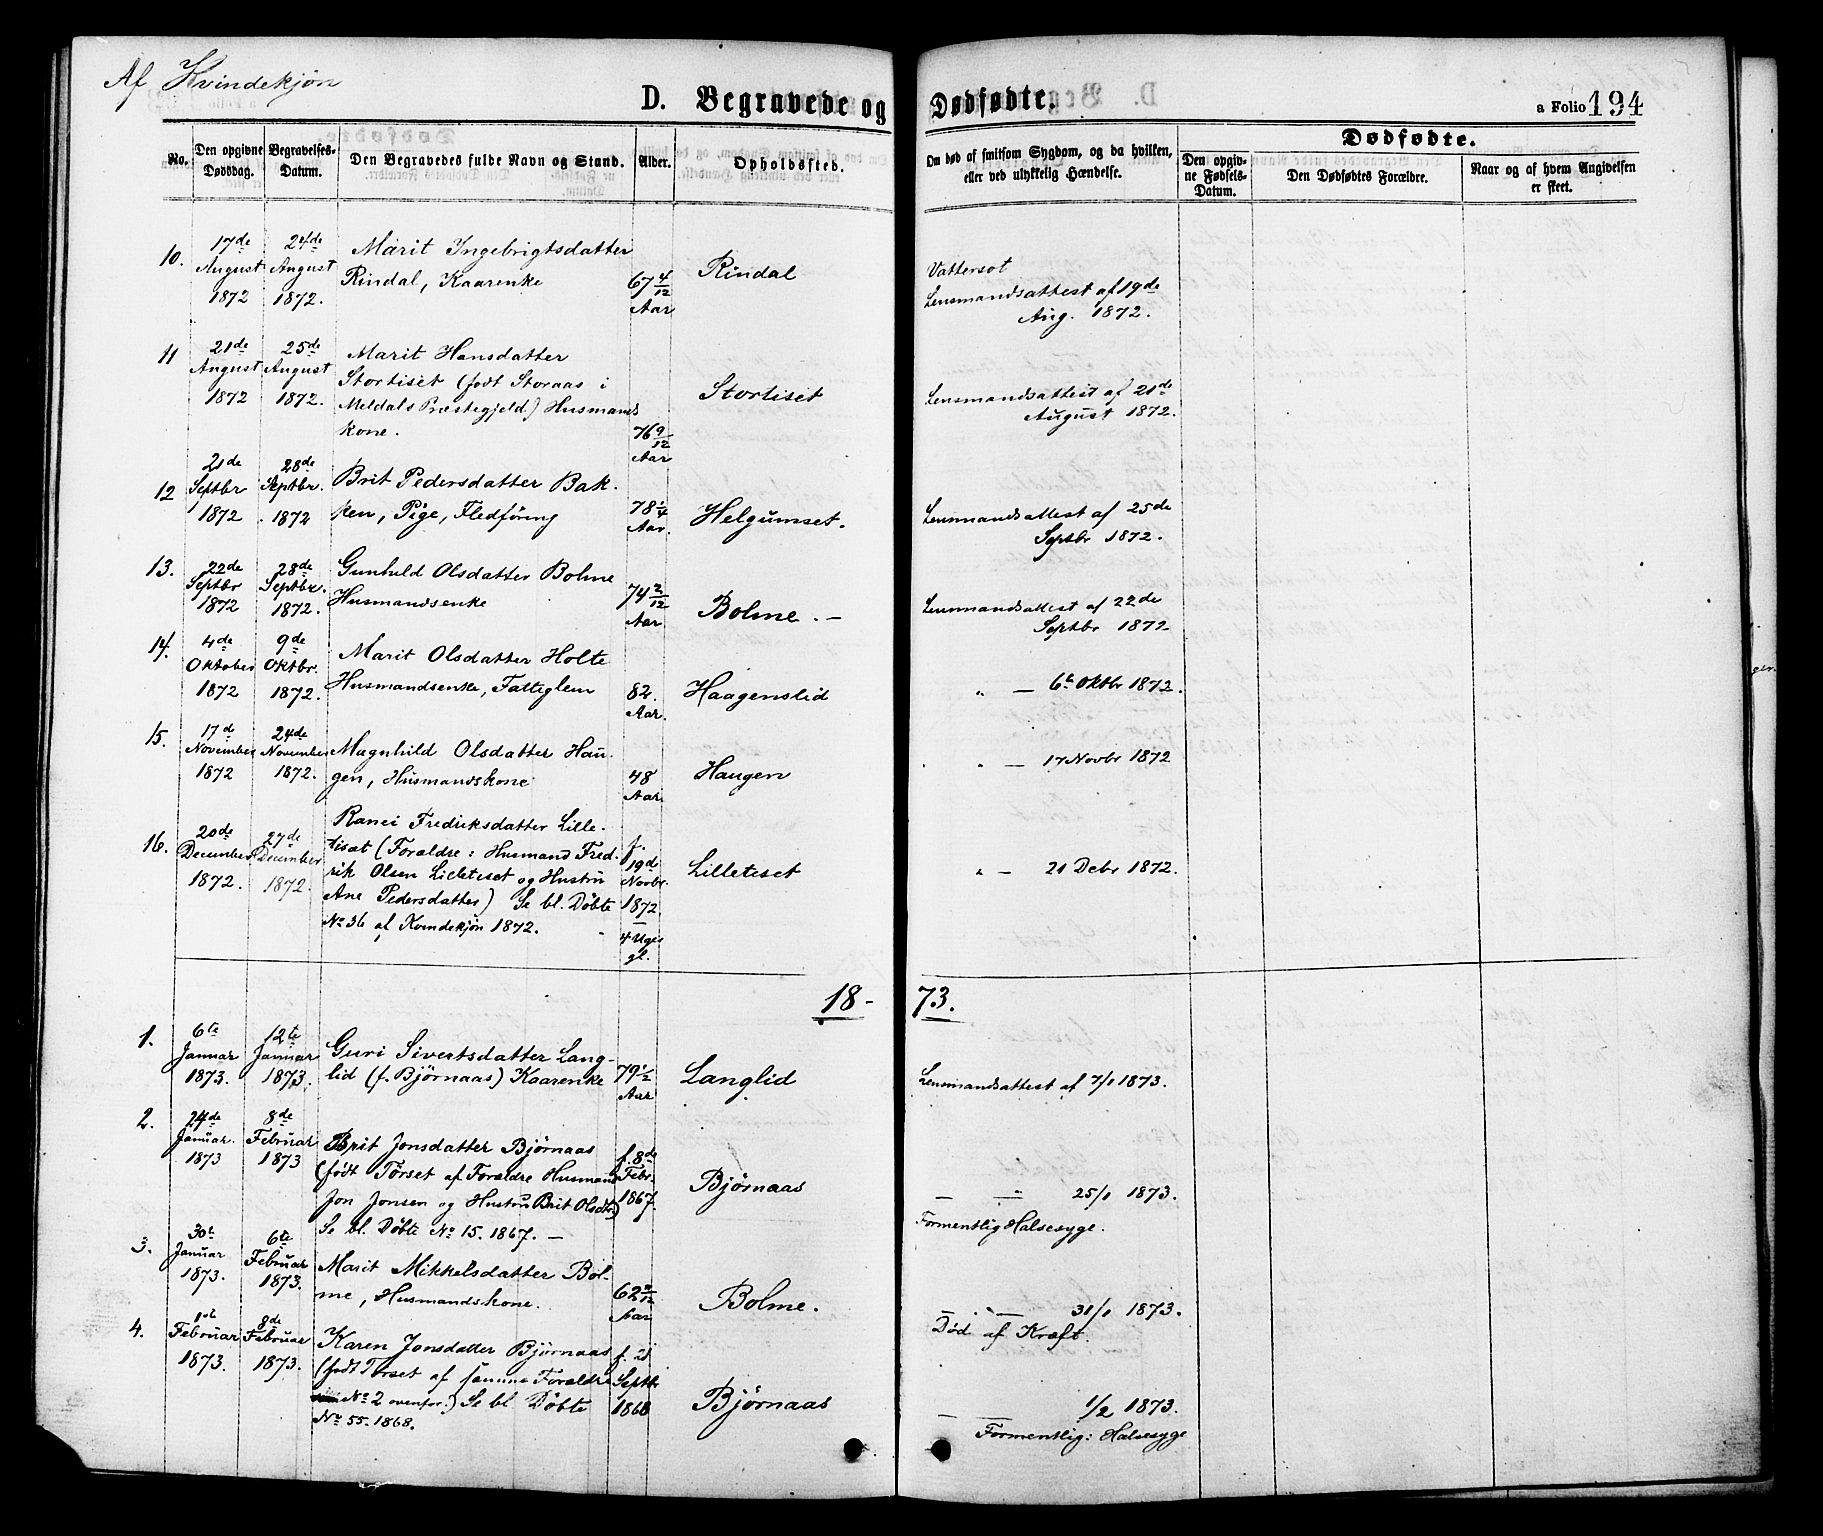 Af Kvindekjøn
D. Begravede og Dødfødte.
a Folio 194
No.
Den opgivne Dødsdag.
Begravelses-Datum.
Den Begravedes fulde Navn og Stand.
Alder.
Opholdssted.
Om død af smitsom Sygdom, og da hvilken,
eller ved ulykkelig Hændelse.
Dødfødte.
Den opgiv-
ne Fødsels-
Datum.
Den Dødfødtes Forældre.
Naar og af hvem Angivelsen
er skeet.
10.
17de
August
1872
24de
August
1872.
Marit Ingebrigtsdatter
Rindal, Kaarenke
67 4/12
Aar
Rindal
Vattersot
Lensmandsattest af 19de
Aug. 1872.
11
21de
August
1872
25de
August
1872.
Marit Hansdatter
Stortiset (født Storaas i
Meldals Præstegjeld) Husmands
kone.
76 9/12
Aar
Stortiset
Lensmandsattest af 21de
August 1872.
12
21de
Septbr
1872
28de
Septbr.
1872
Brit Pedersdatter Bak-
ken, Pige, Fledføring
78 1/4
Aar.
Helgumset.
Lensmandsattest af 25de
Septbr 1872.
13.
22de
Septbr
1872
28de
Septbr.
1872.
Gunhild Olsdatter Bolme
Husmandsenke
74 2/12
Aar
Bolme. -
Lensmandsattest af 22de
Septbr 1872
14.
4de
Oktober
1872
9de
Oktbr.
1872.
Marit Olsdatter Holte
Husmandsenke, Fattiglem
82.
Aar.
Haagenslid
" — 6te Oktbr 1872.
15.
17de
November
1872
24de
November
1872.
Magnhild Olsdatter Hau-
gen, Husmandskone
48
Aar.
Haugen
" — 17 Novbr 1872
16.
20de
December
1872.
27de
December
1872.
Ranei Fredriksdatter Lille-
tiset (Forældre: Husmand Fred-
rik Olsen Lilletiset og Hustru
Ane Pedersdatter) Se bl. Døbte
No 36 af Kvindekjøn 1872.
f.
19de
Novbr.
1872
4 Uger
gl.
Lilletiset
" — 21 Debr 1872.
18-73.
1.
6te
Januar
1873.
12te
Januar
1873.
Guri Sivertsdatter Lang-
lid (f. Bjørnaas) Kaarenke
79 1/2
Aar
Langlid
Lensmandsattest af 7/1 1873.
2.
24de
Januar.
1873
8de
Februar
1873
Brit Jonsdatter Bjørnaas
(født Tørset af Forældre Husmand
Jon Jonsen og Hustru Brit Olsdtr)
Se bl. Døbte No 15. 1867. —
f. 8de
Febr.
1867.
Bjørnaas
— " — 25/1 1873.
Formentlig Halsesyge.
3.
30te
Januar
1873.
6te
Februar
1873.
Marit Mikkelsdatter Bol-
me, Husmandskone.
Aar
Bolme.
— " — 31/1 1873.
Død af Kræft.
4.
1ste
Februar
1873.
8de
Februar
1873.
Karen Jonsdatter Bjørnaas
(født Tørset af samme Forældre
No 2 ovenfor.) Se bl Døbte
No 55. 1868.
f. 21
Septbr
1868
Bjørnaas
— — 1/2 1873.
Formentlig: Halsesyge